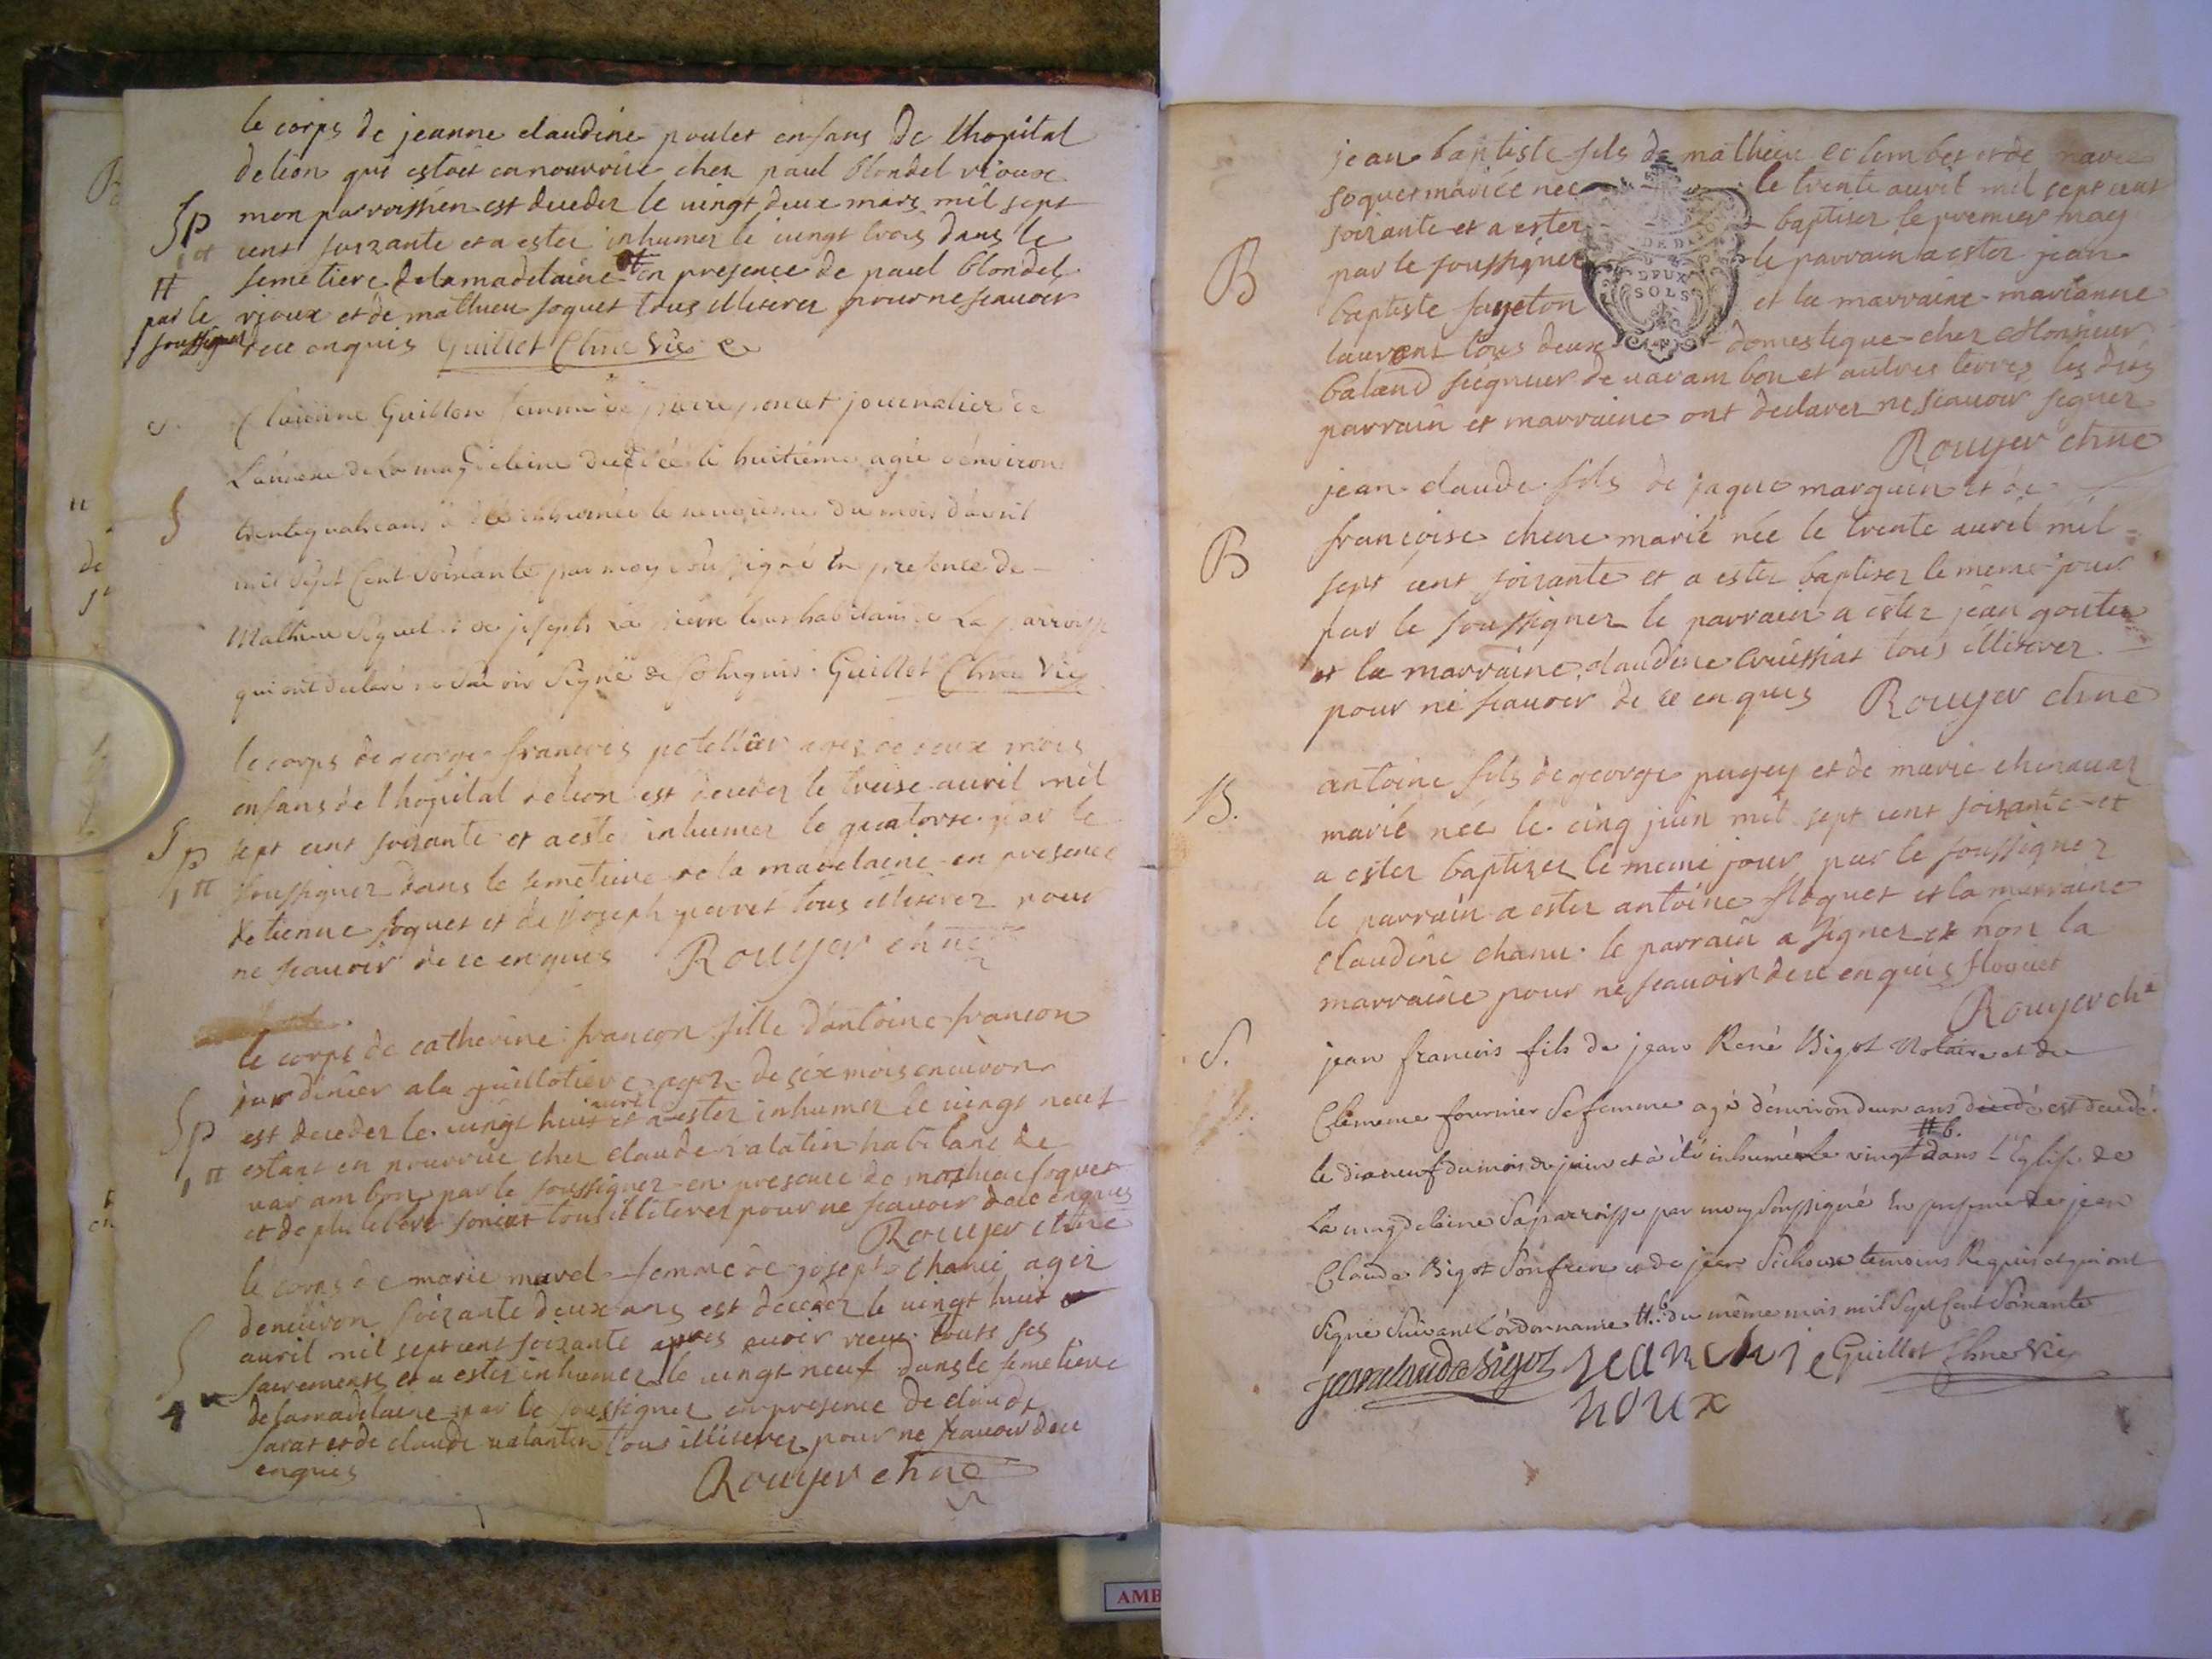 le corps de jeanne claudine poulet enfans de lhopital
delion qui estoit en nourrise chez paul blondel vioux
Sp mon parroissien est deceder le vingt deux mars mil sept
cent soixante et a ester inhumer le vingt trois dans le
semetiere delamadelaine en presence de paul blondel
par le soussigner
vioux et de mathieu soquet tous illiterez pour ne scauoir
de ce enquis Guillot Chne Vic
Guillon femme de pierre poncet journalier de
La magdeleine decedée le huitiéme agée d'environ
S trente quatre ans a été inhumée le neuvieme du mois d'avril
mil sept Cent Soixante par moy Soussigné En presence de
Mathieu Soquet et de joseph La pierre tous habitans de La parroisse
qui ont declaré ne Savoir Signé de ce Enquis. Guillot Chne Vic
le corps de george francois potellier agez de deux mois
enfans de lhopital delion est deceder le treise auril mil
Sp sept cent soixante et a ester inhumer le quatorse par le
soussigner dans le semetiere de la madelaine en presence
detienne soquet et de joseph perret tous illiterez pour
ne scauoir de ce enquis Rouyer chne
le corps de catherine francon fille dantoine francon
jardinier a la guillotiere agez de six mois enuiron
auril
Sp est deceder le vingt huit et a ester inhumer le vingt neuf
estant en nourrise chez claude valatin habitant de
varambon par le soussigner en presence de mathieu soquet
et de philibert tous illiterez pour ne scauoir de ce enquis
Rouyer chne
le corps de marie morel femme de joseph chanu agez
denuiron soixante deux ans est deceder le vingt huit
S auril mil sept cent soixante apres auoir receu touts ses
sacrements et a ester inhumer le vingt neuf dans le semetiere
delamadelaine par le soussigner en presence de claude
sarat et de claude valantin tous illiterez pour ne scauoir de ce
enquis
Rouyer chne
jean baptiste fils de mathieu colombet et de marie
soquet mariée née le trente auril mil sept cent
soixante et a ester baptiser le premier may
B par le soussigner le parrain a ester jean
DEUX
SOLS
baptiste fayeton et la marraine marianne
laurent tous deux domestique chez Monsieur
baland seigneur de varambon et autres terres les dits
parrain et marraine ont declarer ne scauoir signer
Rouyer chne
jean claude fils de jaque marguin et de
B francoise chene marié née le trente auril mil
sept cent soixante et a ester baptiser le meme jour
par le soussigner le parrain a ester jean goutier
et la marraine claudine cruissiat tous illiterez
pour ne scauoir de ce enquis Rouyer chne
B. antoine fils de george pugey et de marie chenauaz
marié née le cinq juin mil sept cent soixante et
a ester baptiser le meme jour par le soussigner
le parrain a ester antoine floquet et la marraine
claudine chanu le parrain a signer et non la
marraine pour ne scauoir de ce enquis floquet
Rouyer che
S. jean francois fils de jean René Bigot Notaire et de
Clemence fournier Sa femme agé d'environ deux ans decedé est decedé
le dixneuf du mois de juin et à été inhumé le vingt dans l'Eglise de
La magdelaine Sa parroisse par moy Soussigné En presence de jean
Claude Bigot Son frere et de jean Sichoux temoins Requis et qui ont
Signé Suivant l'ordonnance du même mois mil Sept Cent Soixante
jean claude bigot jean chi Guillot Chne Vic
noux
AMB